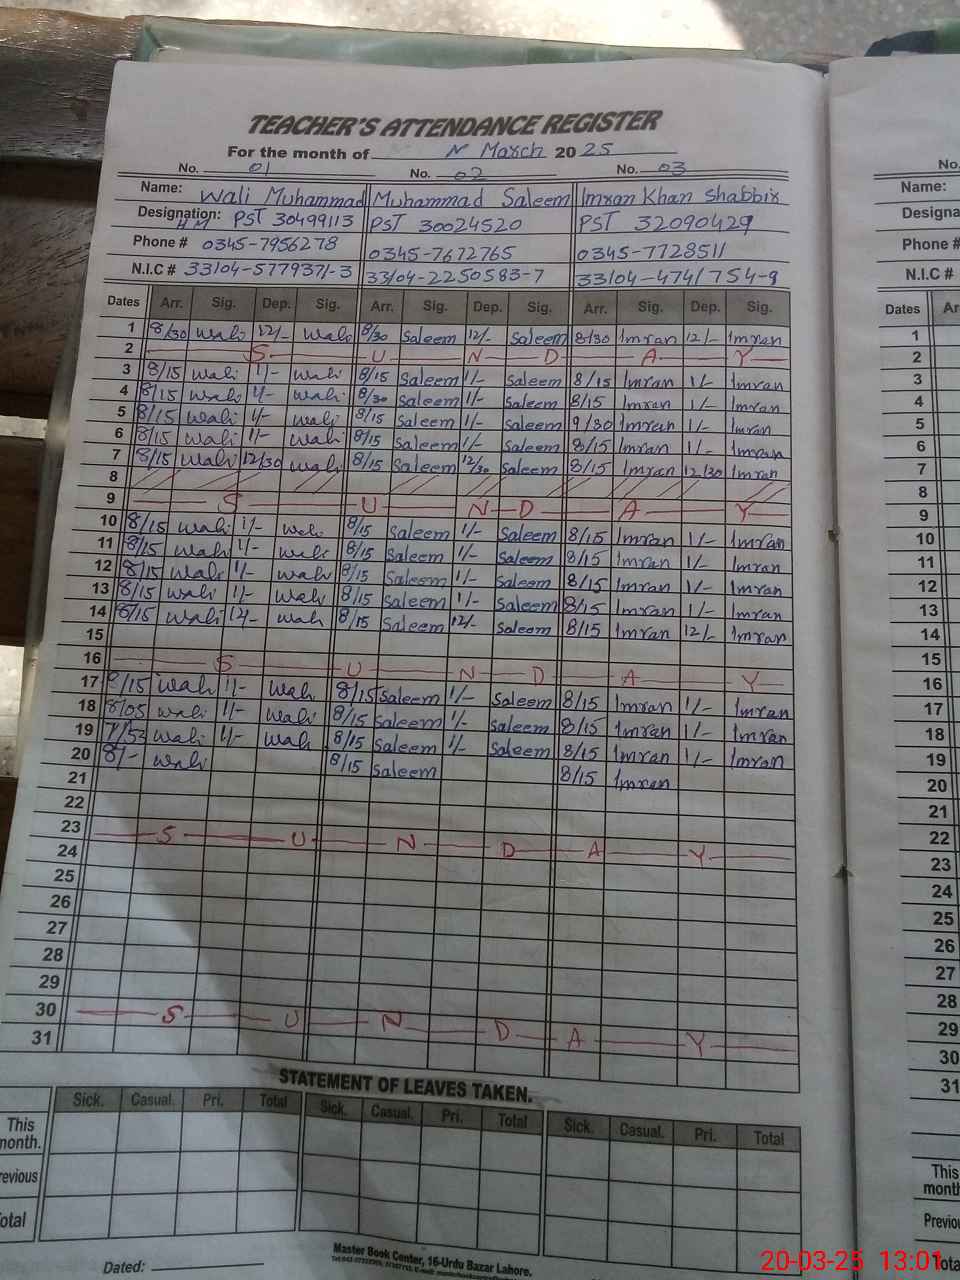 TEACHER'S ATTENDANCE REGISTER
For the month of March 2025
No. 01 No. 02 No. 03 No.
Name: Wali Muhammad Muhammad Saleem Imran Khan Shabbir Name:
Designation: PST 30499113 PST 30024520 PST 32090429 Designa
HM
Phone # 0345-7956278 0345-7672765 0345-7728511 Phone #
N.I.C # 33104-577937/-3 33104-2250583-7 33104-4741754-9 N.I.C #
Dates Arr. Sig. Dep. Sig. Arr. Sig. Dep. Sig. Arr. Sig. Dep. Sig. Dates Ar
1 8/30 Wali 12/- Wali 8/30 Saleem 12/- Saleem 8/30 Imran 12/- Imran 1
2 S U N D A Y 2
3 8/15 Wali 1/- Wali 8/15 Saleem 1/- Saleem 8/15 Imran 1/- Imran 3
4 8/15 Wali 1/- Wali 8/30 Saleem 1/- Saleem 8/15 Imran 1/- Imran 4
5 8/15 Wali 1/- Wali 8/15 Saleem 1/- Saleem 9/30 Imran 1/- Imran 5
6 8/15 Wali 1/- Wali 8/15 Saleem 1/- Saleem 8/15 Imran 1/- Imran 6
7 8/15 Wali 12/30 Wali 8/15 Saleem 12/30 Saleem 8/15 Imran 12/30 Imran 7
8 8
9 S U N D A Y 9
10 8/15 Wali 1/- Wali 8/15 Saleem 1/- Saleem 8/15 Imran 1/- Imran 10
11 8/15 Wali 1/- Wali 8/15 Saleem 1/- Saleem 8/15 Imran 1/- Imran 11
12 8/15 Wali 1/- Wali 8/15 Saleem 1/- Saleem 8/15 Imran 1/- Imran 12
13 8/15 Wali 1/- Wali 8/15 Saleem 1/- Saleem 8/15 Imran 1/- Imran 13
14 8/15 Wali 12/- Wali 8/15 Saleem 12/- Saleem 8/15 Imran 12/- Imran 14
15 15
16 S U N D A Y 16
17 8/15 Wali 1/- Wali 8/15 Saleem 1/- Saleem 8/15 Imran 1/- Imran 17
18 8/05 Wali 1/- Wali 8/15 Saleem 1/- Saleem 8/15 Imran 1/- Imran 18
19 7/53 Wali 1/- Wali 8/15 Saleem 1/- Saleem 8/15 Imran 1/- Imran 19
20 8/- Wali 8/15 Saleem 8/15 Imran 20
21 21
22 22
23 S U N D A Y 23
24 24
25 25
26 26
27 27
28 28
29 29
30 S U N D A Y 30
31 31
STATEMENT OF LEAVES TAKEN.
Sick. Casual. Pri. Total Sick. Casual. Pri. Total Sick. Casual. Pri. Total
This month. This month
revious Previou
otal Tota
Dated:
Master Book Center, 16-Urdu Bazar Lahore.
20-03-25 13:01